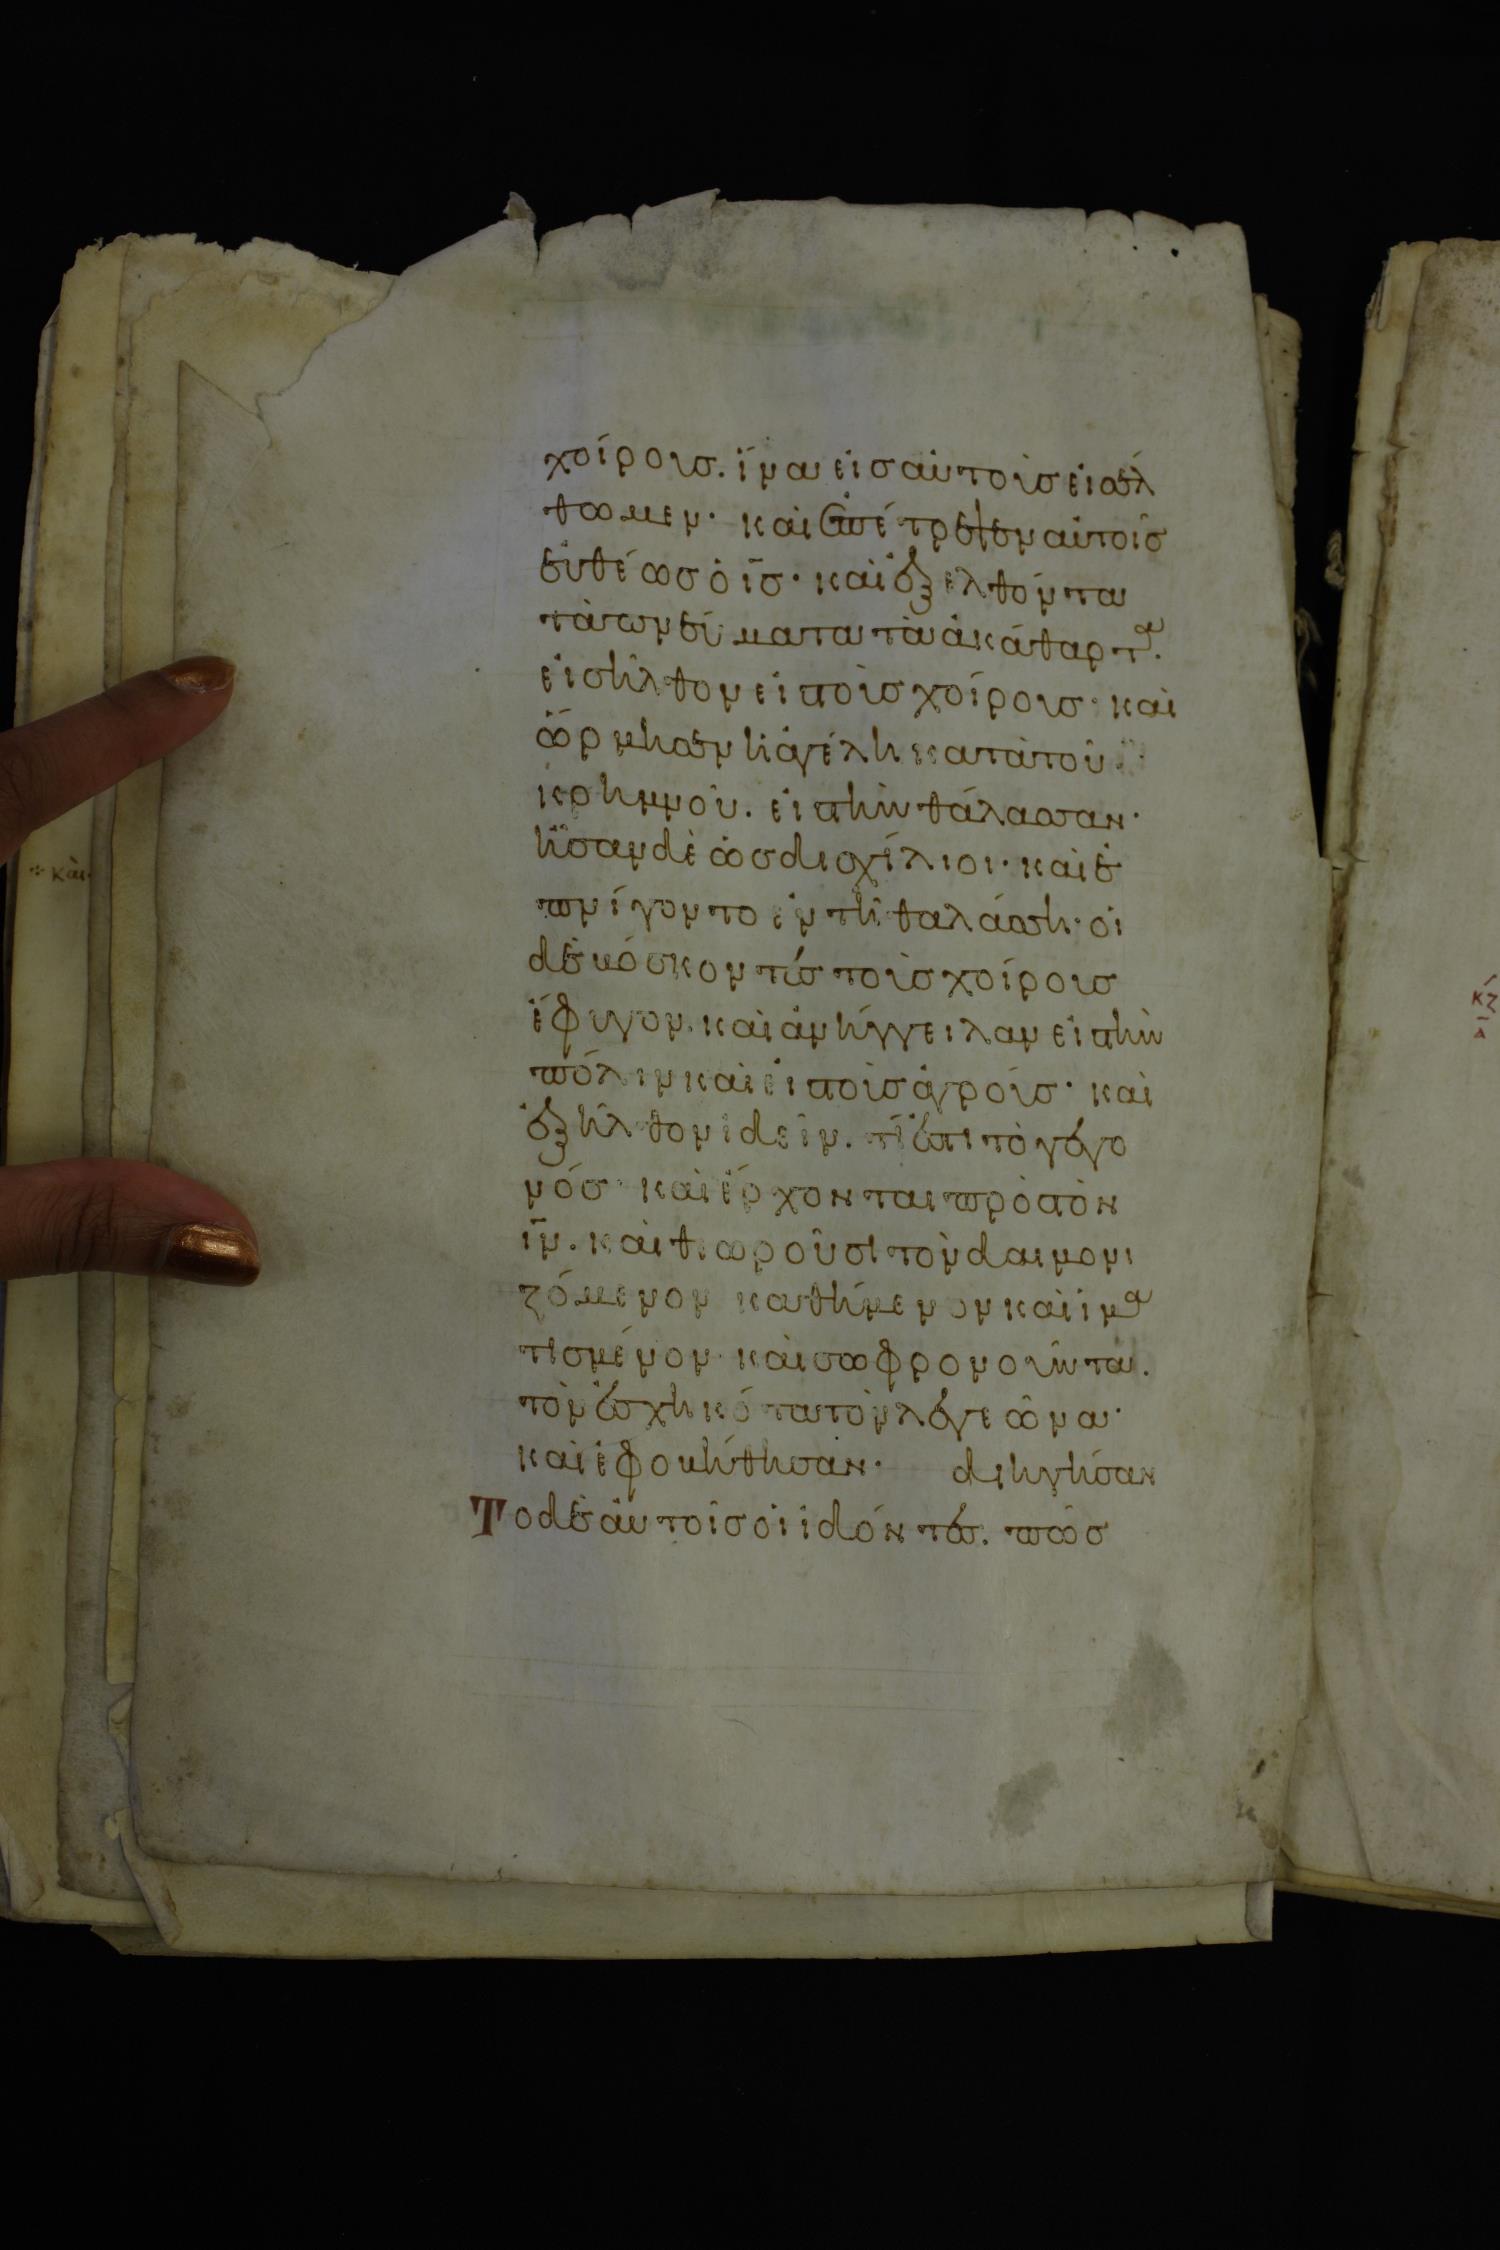 χοίρους. ἵνα εἰσ αὐτοὺσ εἰσέλ
θωμεν· καὶ ἐπέτρεψεν αὐτοῖσ
εὐθέωσ ὁ ι̅σ̅· καὶ ἐξελθόντα
τὰ πνεύματα τὰ ἀκάθαρτα.
εἰσῆλθον εἰ τοὺσ χοίρουσ· καὶ
ὥρμησεν ἡ ἀγέλη κατὰ τοῦ
κρημνοῦ. εἰ τὴν θάλασσαν·
ἦσαν δὲ ὡσ δισχίλιοι· καὶ ἐ
πνίγοντο ἐν τῆ θαλάσση· οἱ
δὲ βόσκοντεσ τοὺσ χοίρουσ
ἔφυγον. καὶ ἀνήγγειλαν εἰ τὴν
πόλιν καὶ εἰ τοὺσ ἀγρούσ· καὶ
ἐξῆλθον ἰδεῖν. τί ἐστι τὸ γεγο
νόσ· καὶ ἔρχονται πρὸσ τὸν
ι̅ν̅. καὶ θεωροῦσι τὸν δαιμονι
ζόμενον καθήμενον καὶ ἱμα
τισμένον· καὶ σωφρονοῦντα.
τὸν ἐσχηκότα τὸν λεγεῶνα·
καὶ ἐφοβήθησαν· διηγήσαν
Το δὲ αὐτοῖσ οἱ ἰδόντεσ. πῶσ
·:· καὶ·
κζ
δ